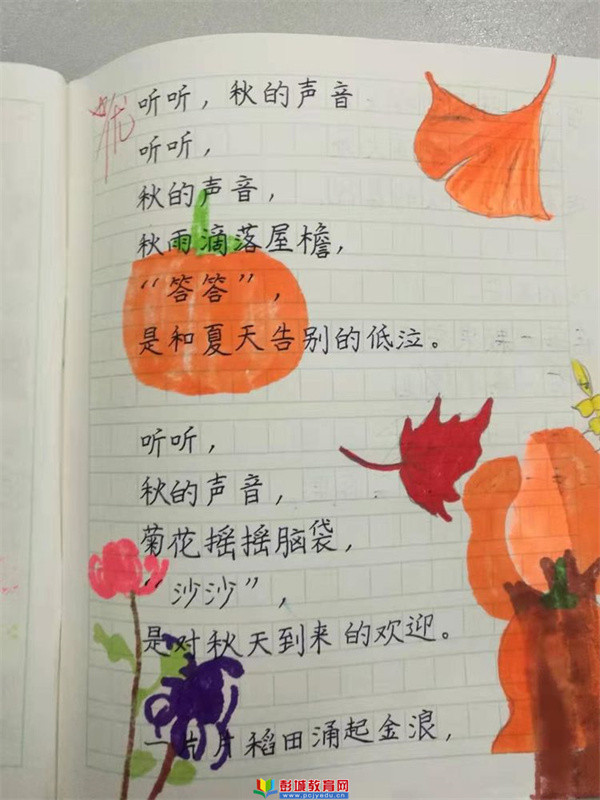 优
听听，秋的声音
听听，
秋的声音，
秋雨滴落屋檐，
“答答”，
是和夏天告别的低泣。
听听，
秋的声音，
菊花摇摇脑袋，
“沙沙”，
是对秋天到来的欢迎。
一片片稻田涌起金浪，
彭城教育网
www.pcjyedu.cn